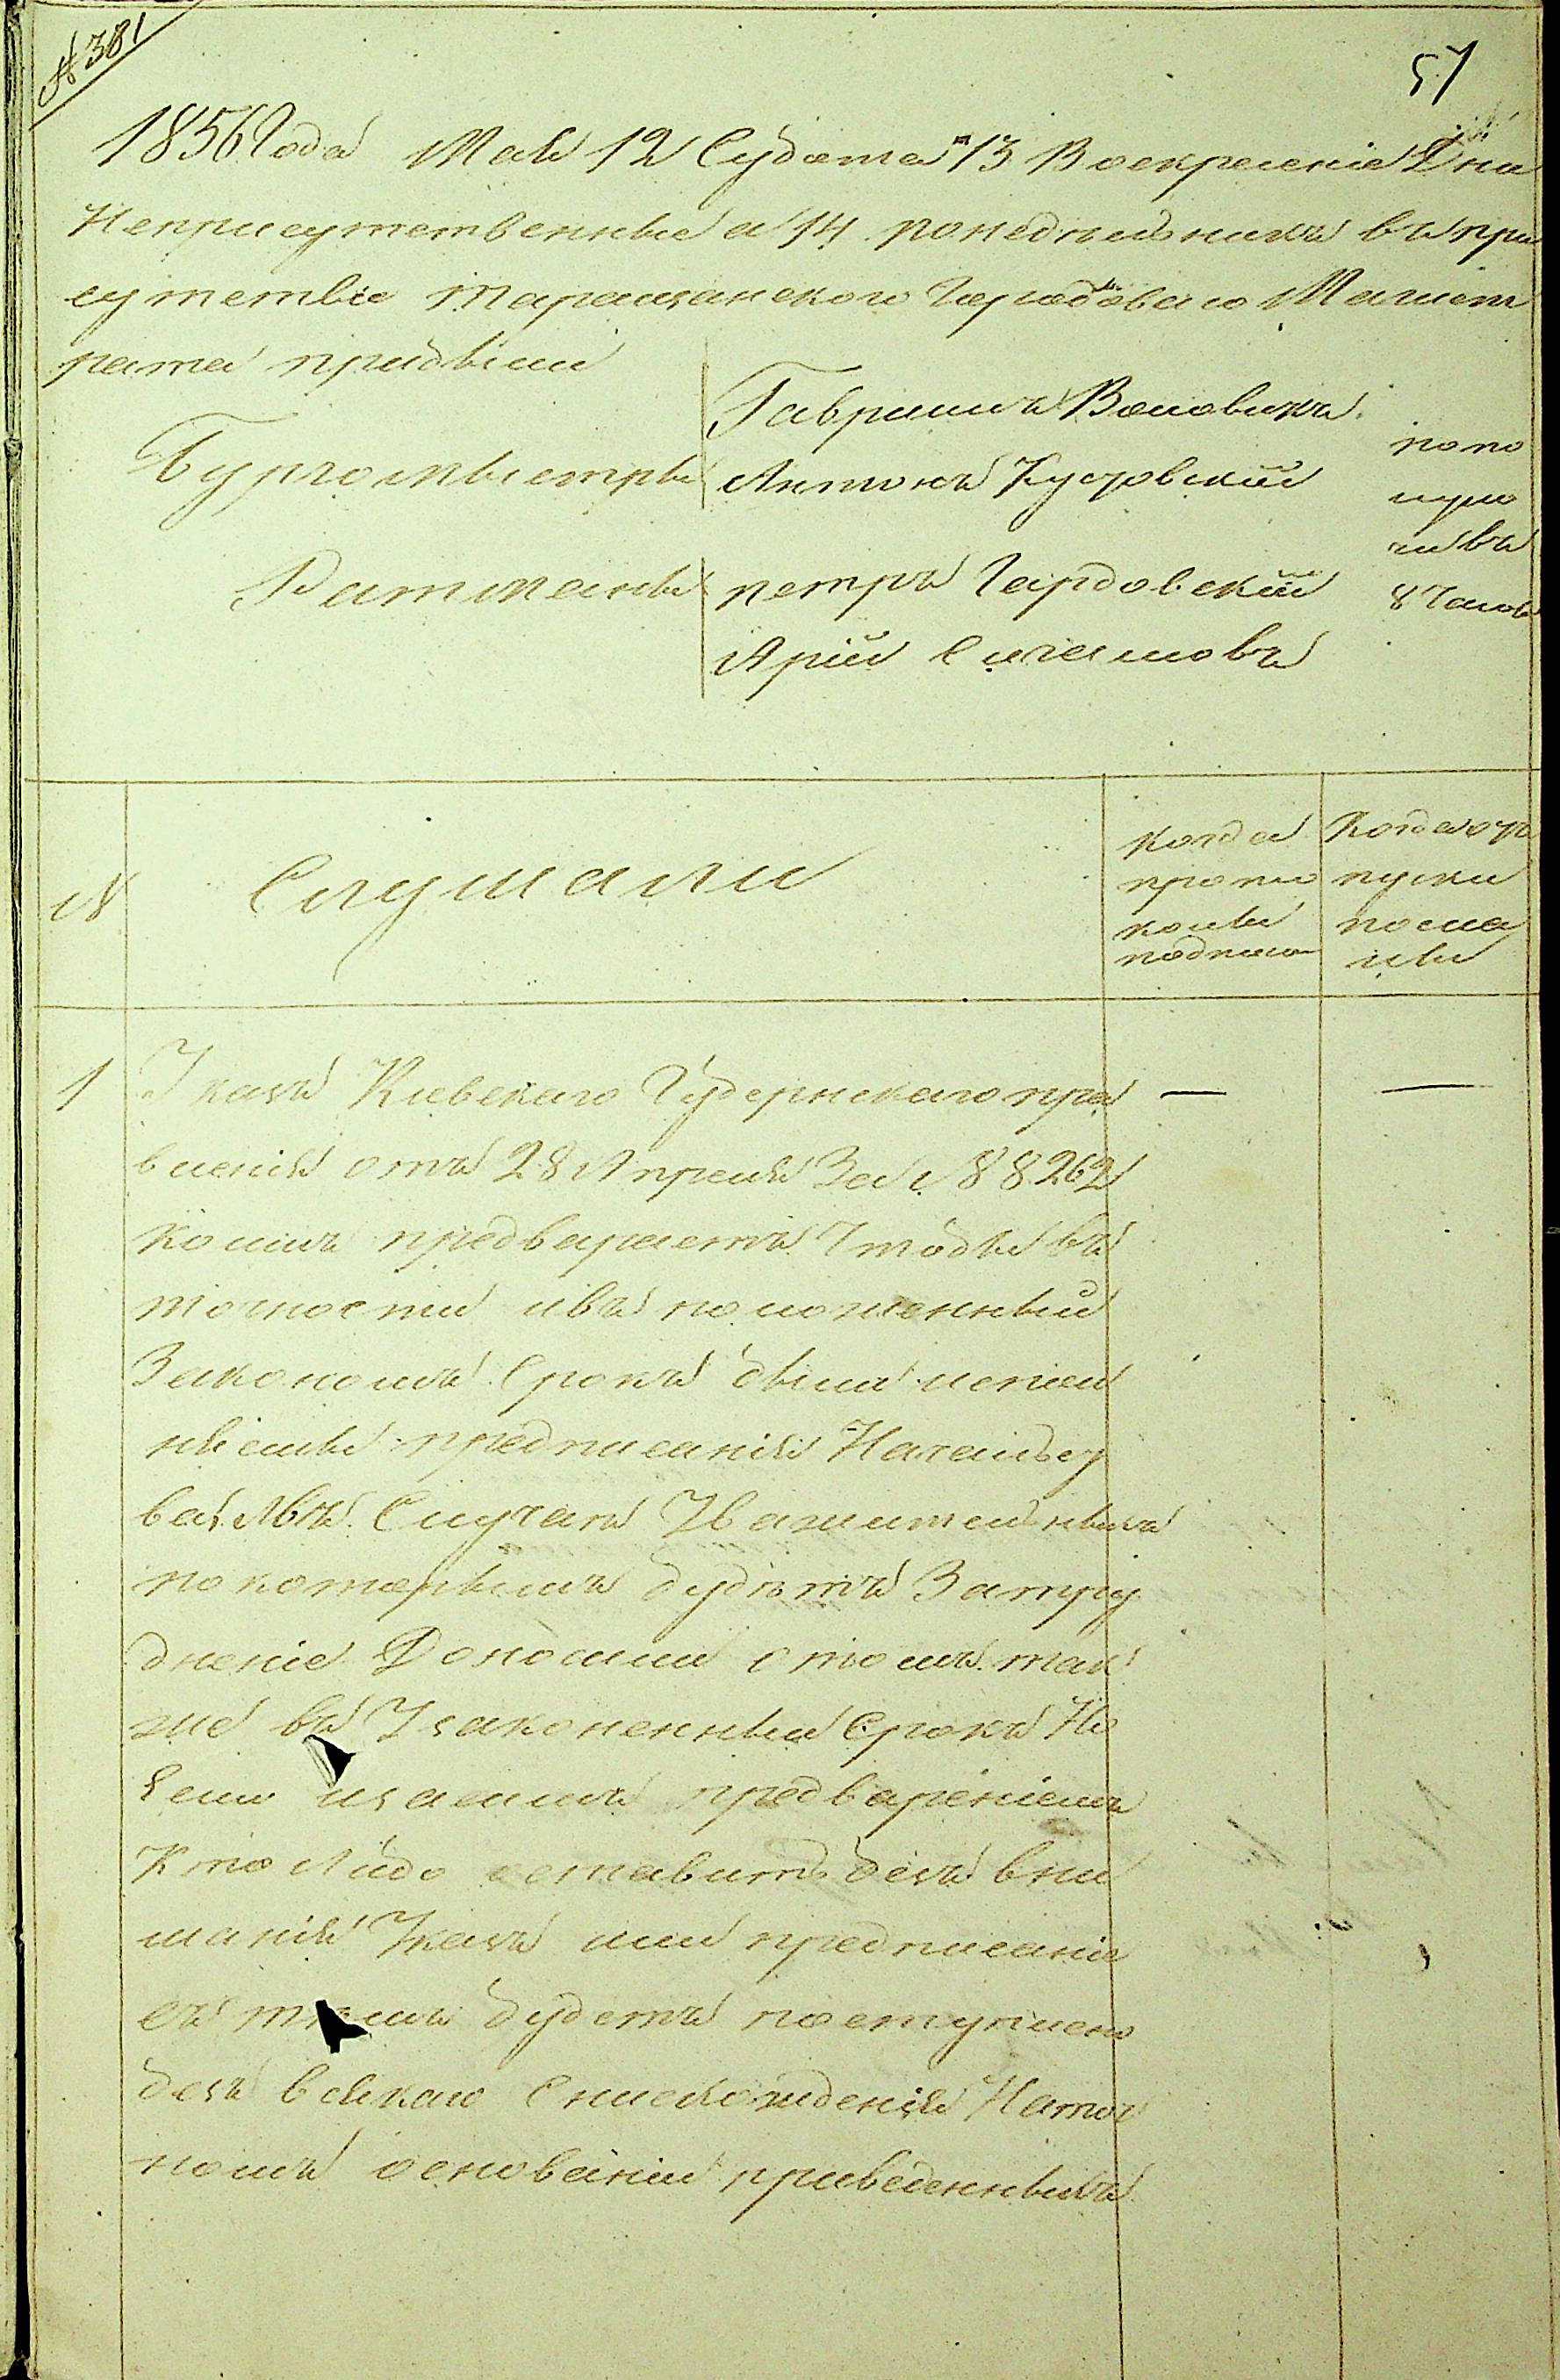 № 381
57
1856 Года Мая 12 Субота 13 Воскресеніе Дни
Неприсутственные а 14 понеделникъ въ при
сутствіе Таращанского Городоваго Магист
рата прибыли
Бургомыстры
Гавриилъ Воловикъ
Антонъ
Ратманы
петръ Гардовскій
Арій
попо
луно
чивъ
8 Часов
№
Слушали
когда
прото
колы
подписа
Когда от
пуски
посла
ны
1
Указъ Киевскаго Губернскаго пра
вленія отъ 28 Апреля За № 88262
коимъ предваряетъ Чтобы въ
точности ивъ положенный
Закономъ Срокъ были испол
няемы предписанія Начальс
ва Авъ Случаяхъ Уважителныхъ
покоторымъ будетъ Затру
дненіе Доносили отомъ так
же въ Узаконенный Срокъ Но
Если засимъ предвареніемъ
Кто Либо оставитъ безъ вни
манія Указъ или предписаніе
съ темъ будетъ поступлено
безъ всякаго Снисхожденія Наточ
номъ основаніи приведенныхъ